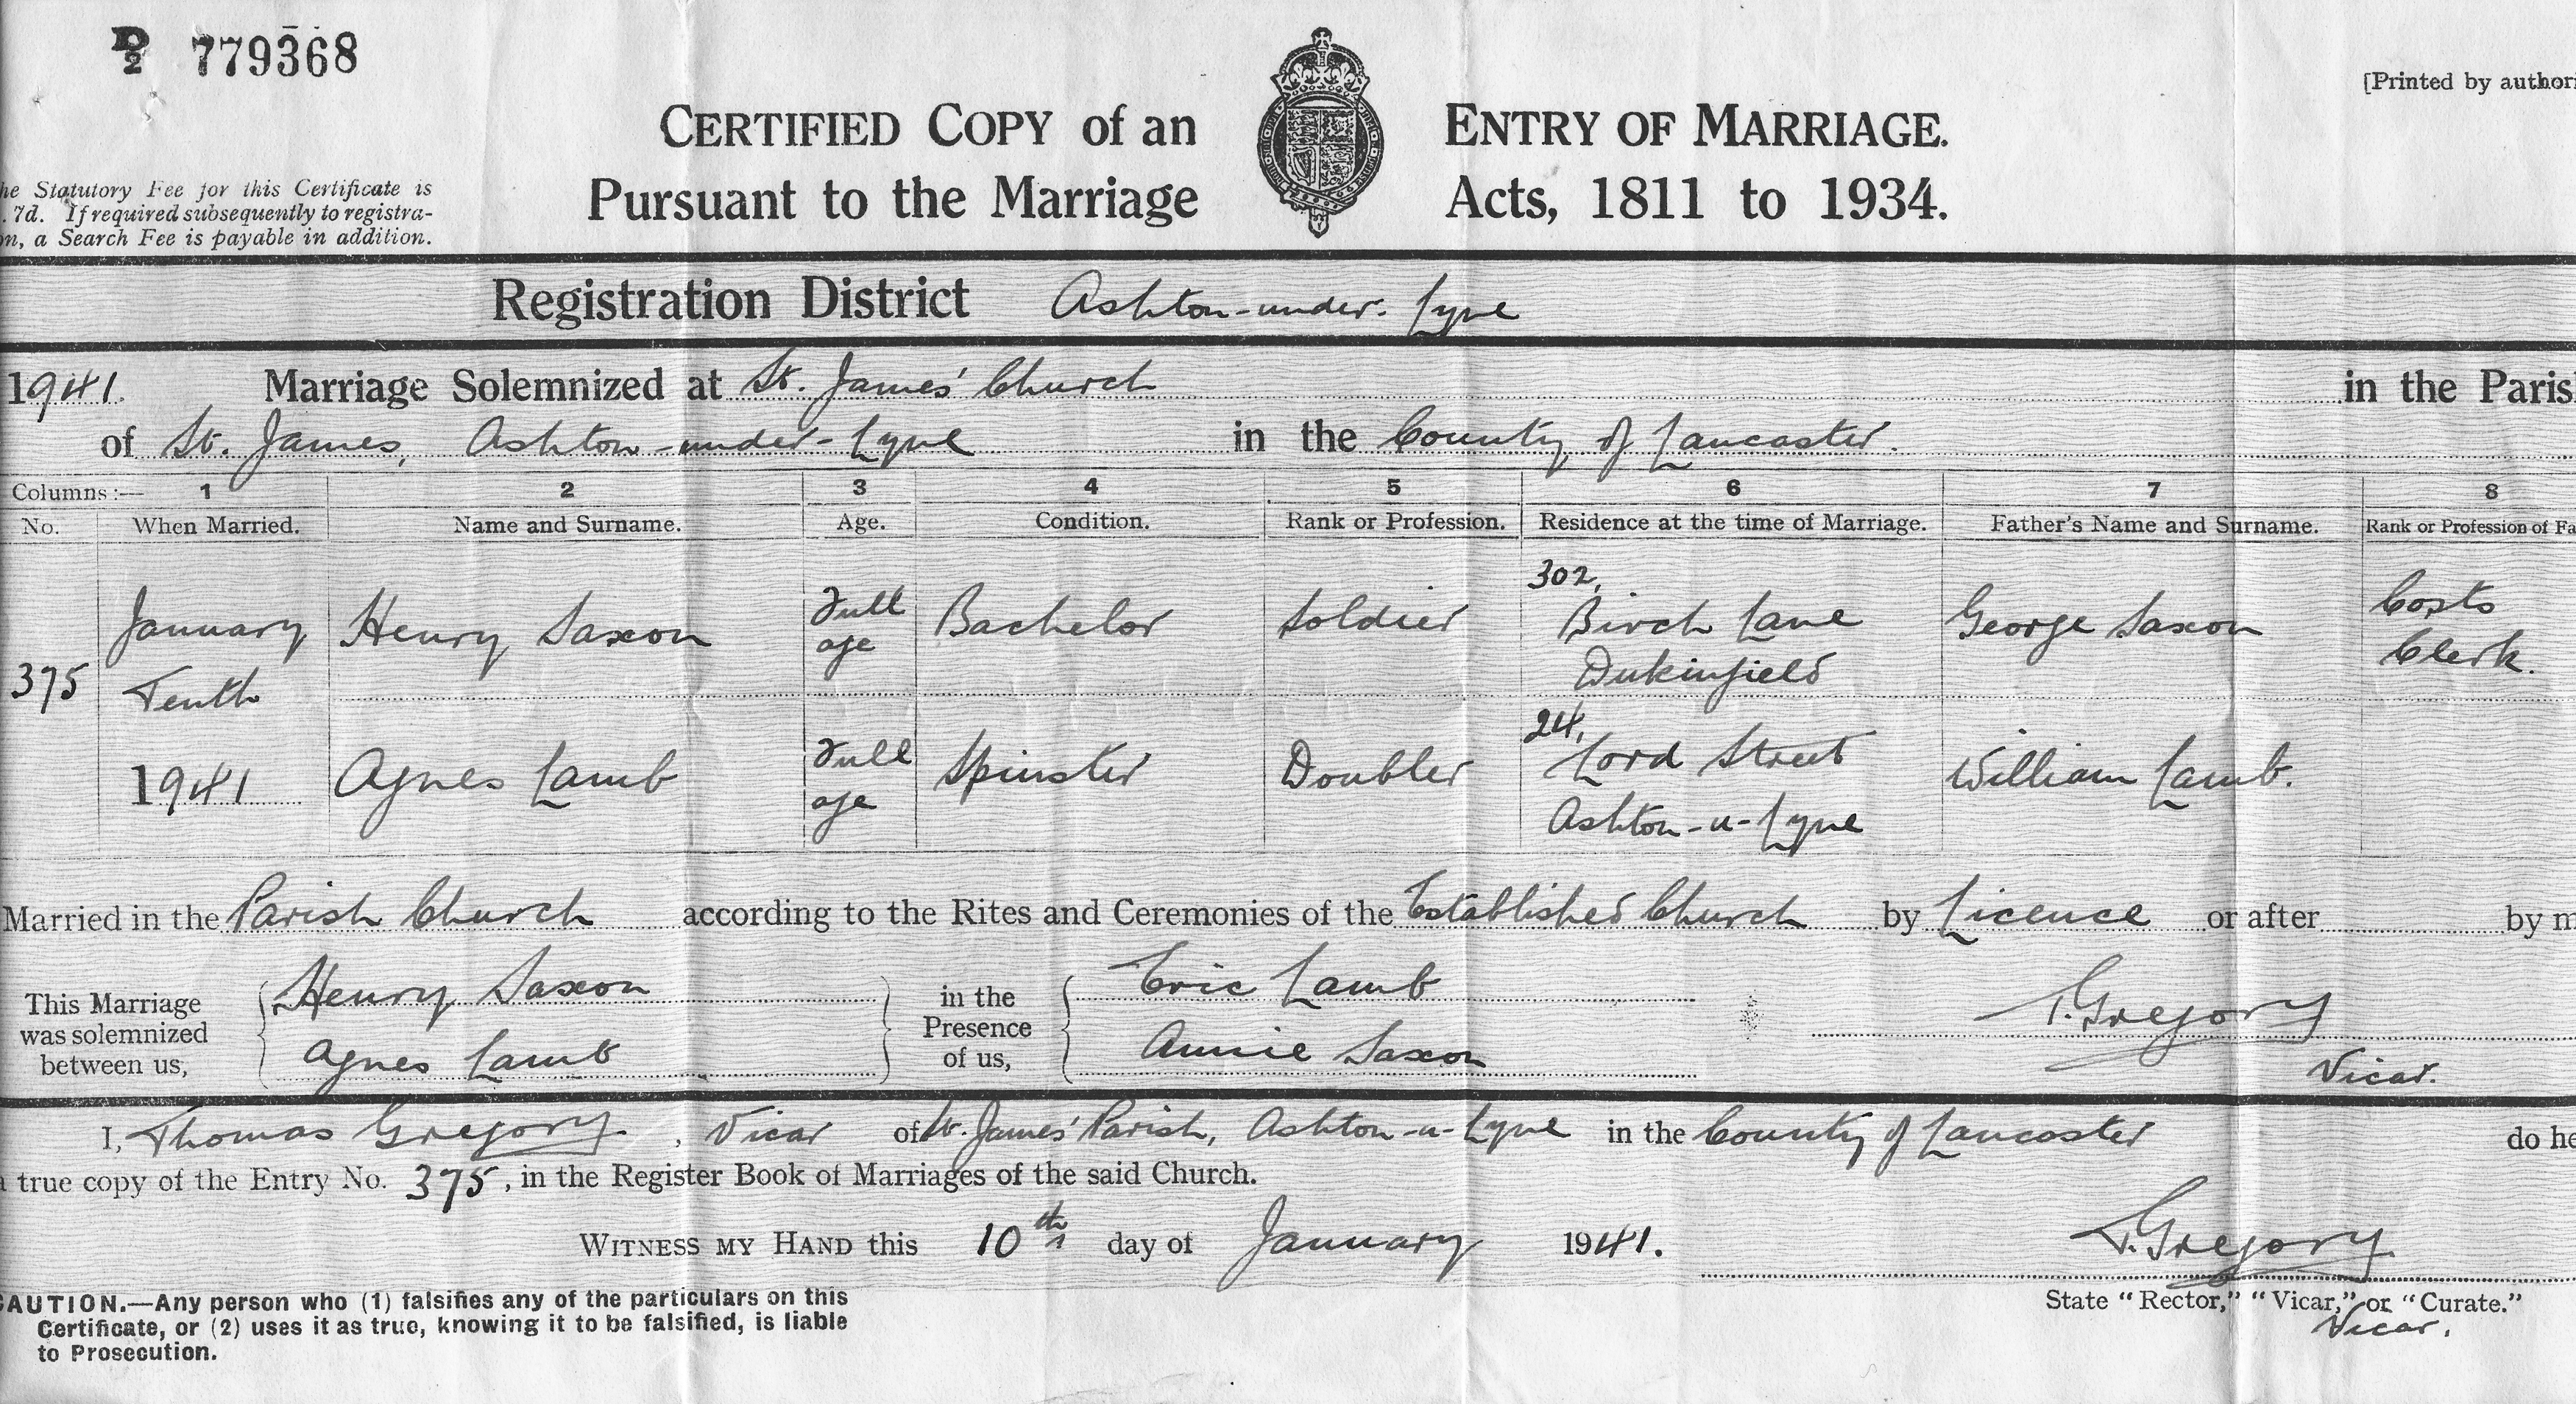 D 2 779368
[Printed by authori
CERTIFIED COPY of an ENTRY OF MARRIAGE.
Pursuant to the Marriage Acts, 1811 to 1934.
he Statutory Fee for this Certificate is
. 7d. If required subsequently to registra-
on, a Search Fee is payable in addition.
Registration District Ashton-under-Lyne
1941. Marriage Solemnized at St. James' Church in the Paris
of St. James, Ashton-under-Lyne in the County of Lancaster.
Columns:— 1 2 3 4 5 6 7 8
No. When Married. Name and Surname. Age. Condition. Rank or Profession. Residence at the time of Marriage. Father's Name and Surname. Rank or Profession of Fa
375 January Tenth 1941
Henry Saxon Full age Bachelor Soldier 302, Birch Lane Dukinfield George Saxon Costs Clerk.
Agnes Lamb Full age Spinster Doubler 24, Lord Street Ashton-u-Lyne William Lamb.
Married in the Parish Church according to the Rites and Ceremonies of the Established Church by Licence or after by m
This Marriage was solemnized between us, Henry Saxon Agnes Lamb in the Presence of us, Eric Lamb Annie Saxon T. Gregory Vicar.
I, Thomas Gregory, Vicar of St. James' Parish, Ashton-u-Lyne in the County of Lancaster do he
a true copy of the Entry No. 375, in the Register Book of Marriages of the said Church.
WITNESS MY HAND this 10th day of January 1941. T. Gregory
State "Rector," "Vicar," or "Curate."
Vicar.
CAUTION.—Any person who (1) falsifies any of the particulars on this
Certificate, or (2) uses it as true, knowing it to be falsified, is liable
to Prosecution.